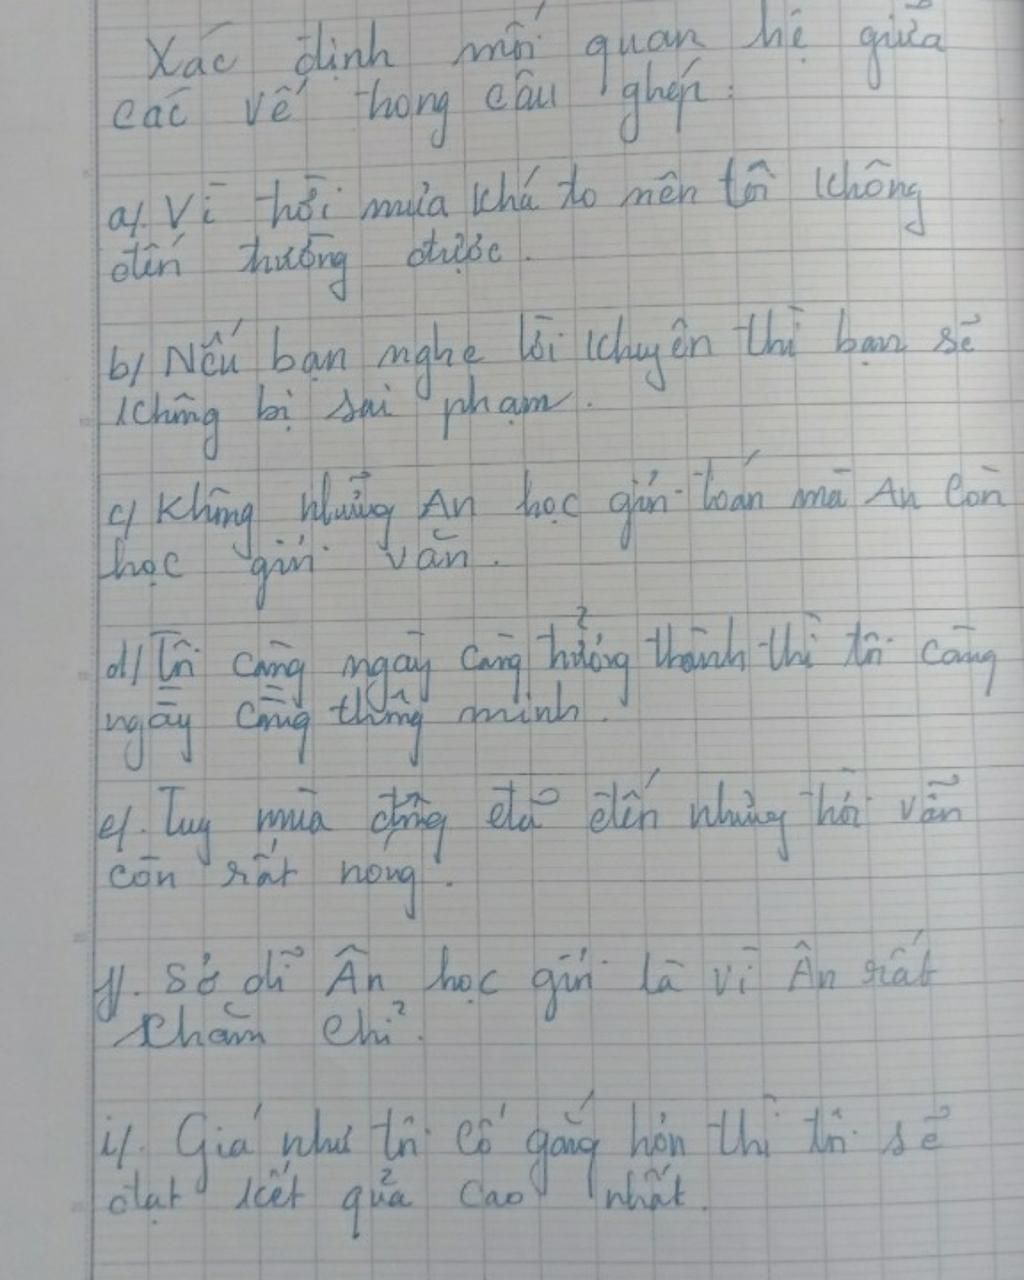 Xác định mối quan hệ giữa
các vế trong câu ghép:
a/. Vì trời mưa khá to nên tôi không
đến trường được.
b/ Nếu bạn nghe lời khuyên thì bạn sẽ
không bị sai phạm.
c/ Không những An học giỏi toán mà An còn
học giỏi văn.
d/ Tôi càng ngày càng trưởng thành thì tôi càng
ngày càng thông minh.
e/. Tuy mùa đông đã đến nhưng trời vẫn
còn rất nóng.
y/. Sở dĩ Ân học giỏi là vì Ân rất
chăm chỉ.
i/. Giá như tôi cố gắng hơn thì tôi sẽ
đạt kết quả cao nhất.